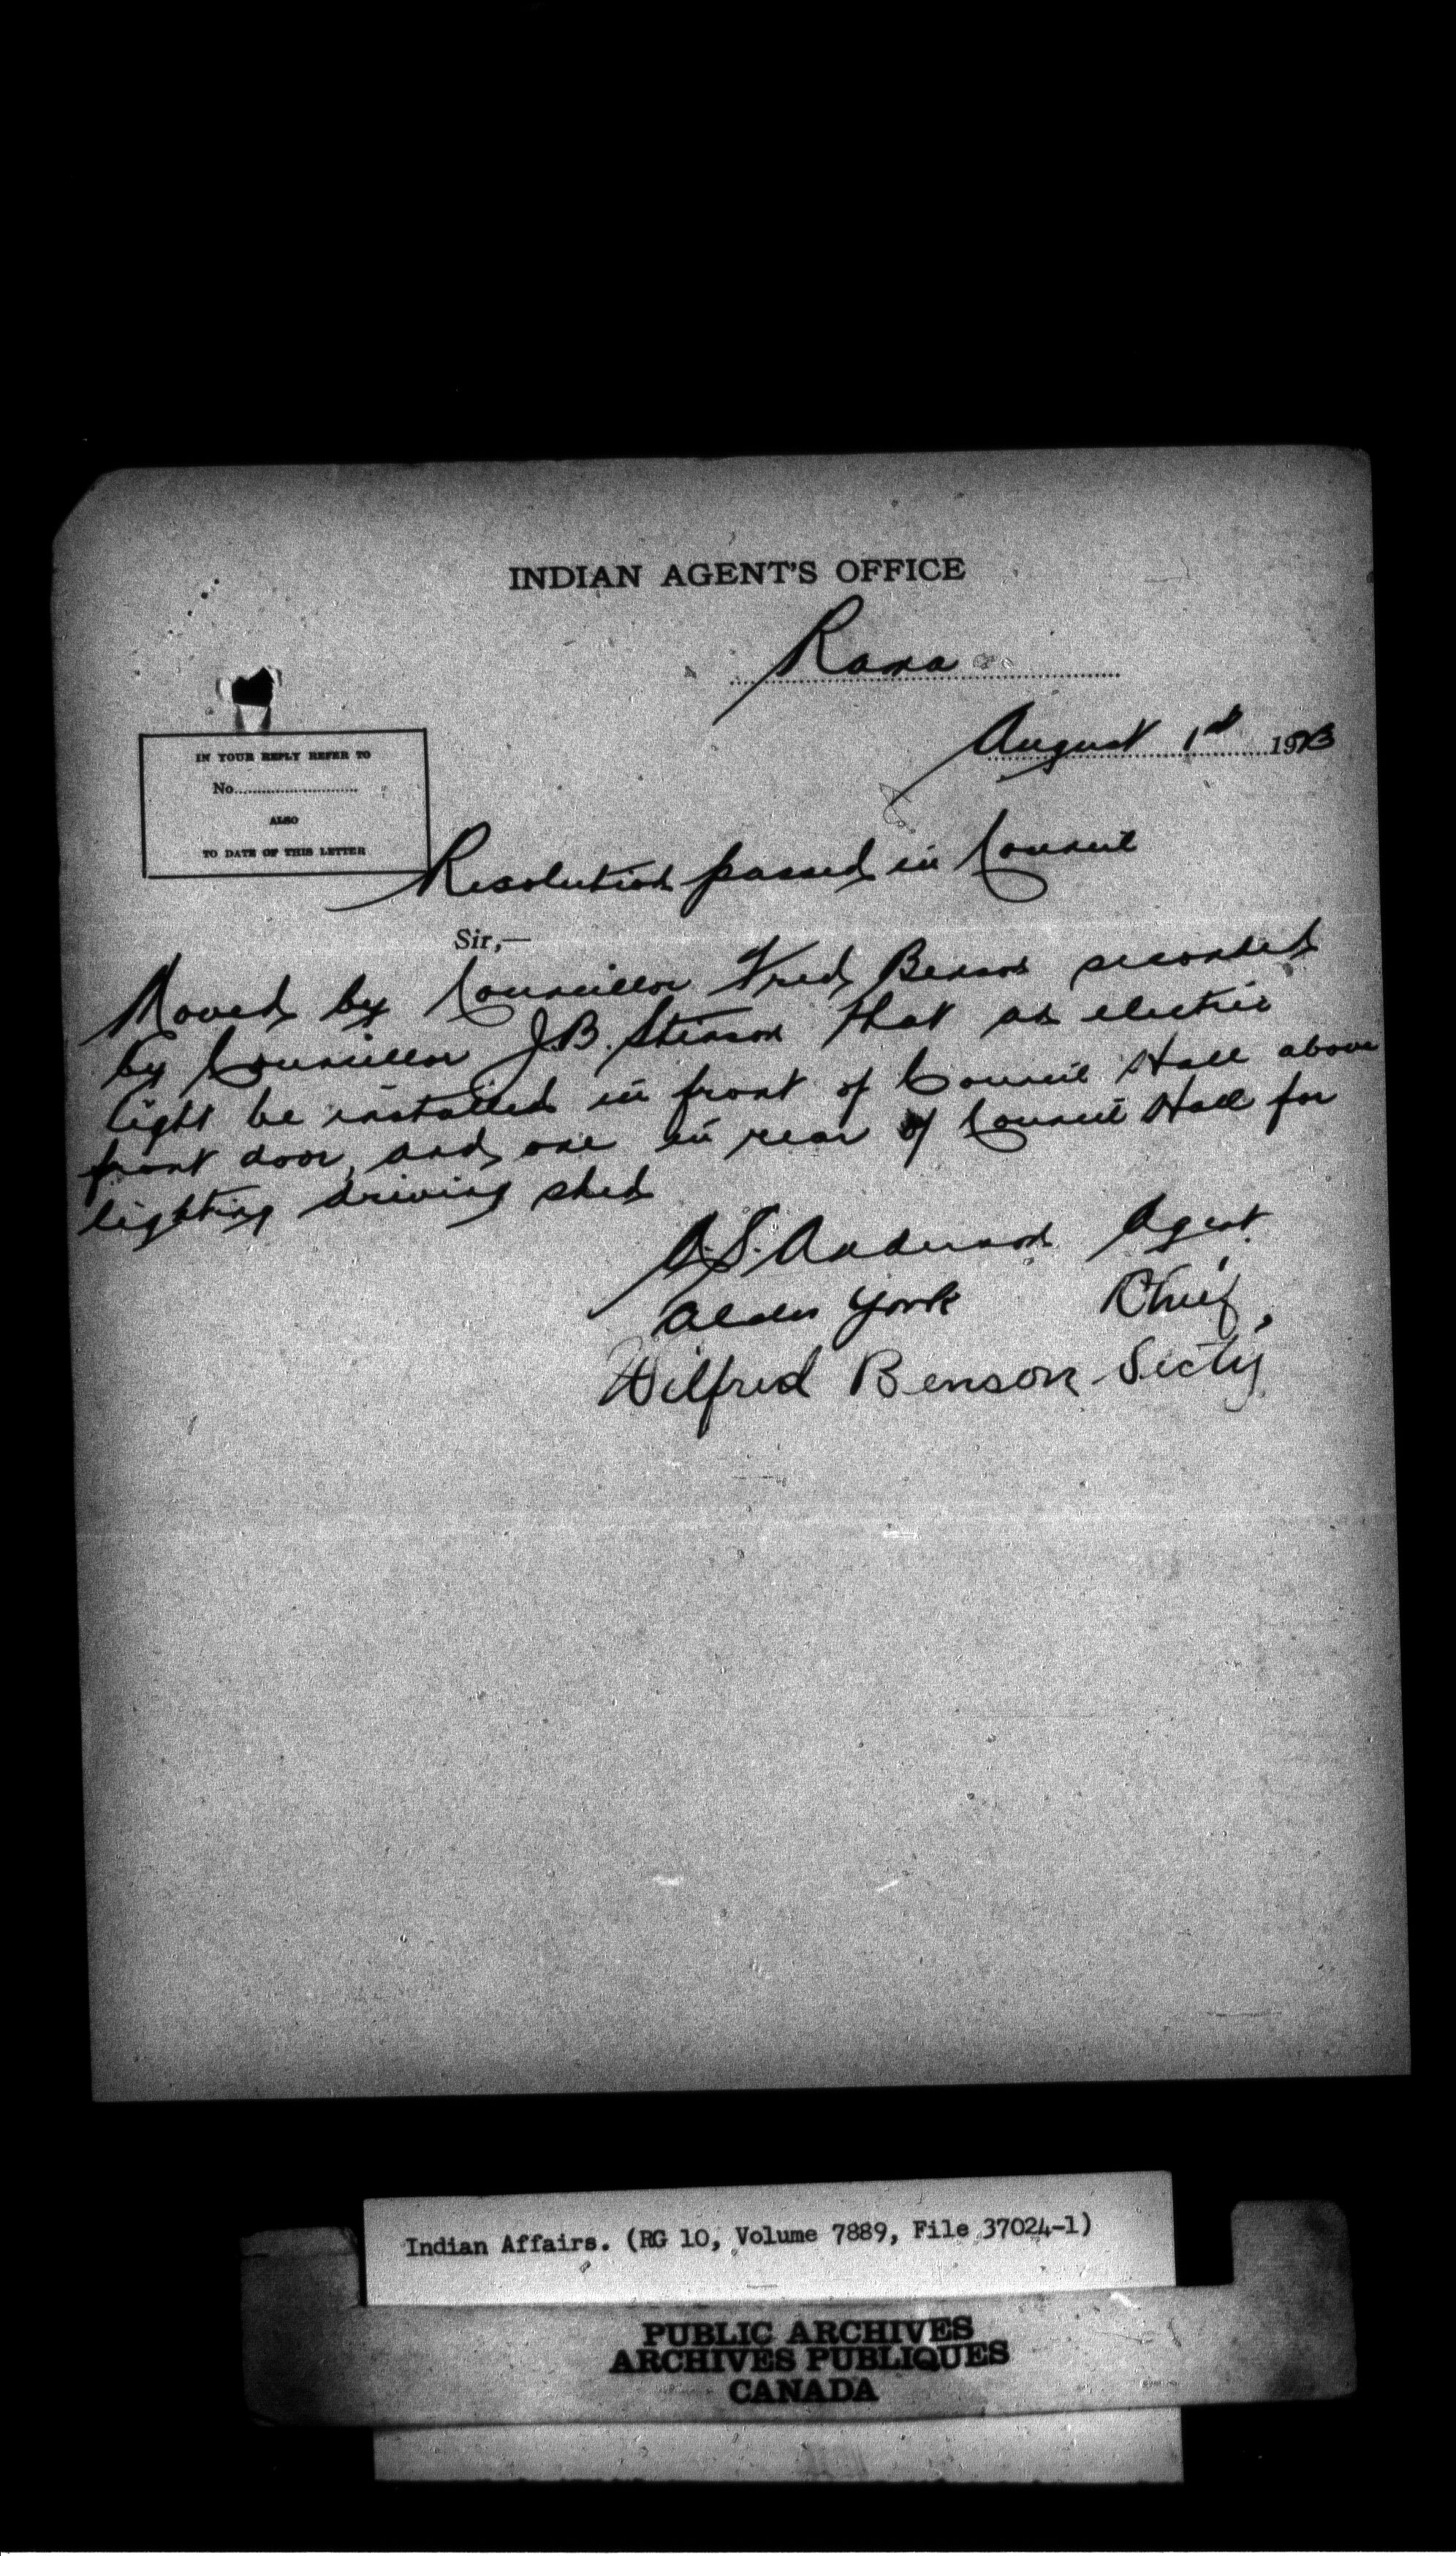 INDIAN AGENT'S OFFICE
Rama
August 1st 1923
IN YOUR REPLY REFER TO
No.
ALSO
TO DATE OF THIS LETTER
Resolution passed in Council
Sir,—
Moved by Councillor Fred Benson seconded
by Councillor J.B. Stinson that an electric
light be installed in front of Council Hall above
front door, and one in rear of Council Hall for
lighting driving shed
A.S. Anderson Agent
Alder York Chief,
Wilfred Benson Sect'y
Indian Affairs. (RG 10, Volume 7889, File 37024-1)
PUBLIC ARCHIVES
ARCHIVES PUBLIQUES
CANADA